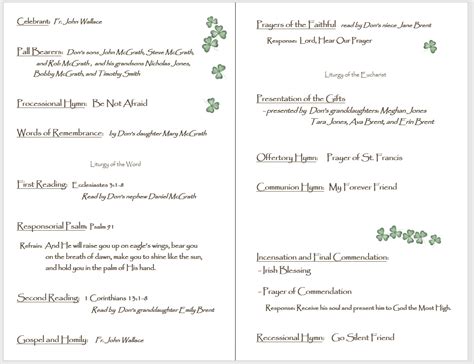 Celebrant: Fr. John Wallace
Pall Bearers: Don's sons John McGrath, Steve McGrath,
and Rob McGrath, and his grandsons Nicholas Jones,
Bobby McGrath, and Timothy Smith
Processional Hymn: Be Not Afraid
Words of Remembrance: by Don's daughter Mary McGrath
Liturgy of the Word
First Reading: Ecclesiastes 3:1-8
Read by Don's nephew Daniel McGrath
Responsorial Psalm: Psalm 91
Refrain: And He will raise you up on eagle's wings, bear you
on the breath of dawn, make you to shine like the sun,
and hold you in the palm of His hand.
Second Reading: 1 Corinthians 13:1-8
Read by Don's granddaughter Emily Brent
Gospel and Homily: Fr. John Wallace
Prayers of the Faithful read by Don's niece Jane Brent
Response: Lord, Hear Our Prayer
Liturgy of the Eucharist
Presentation of the Gifts
– presented by Don's granddaughters: Meghan Jones
Tara Jones, Ava Brent, and Erin Brent
Offertory Hymn: Prayer of St. Francis
Communion Hymn: My Forever Friend
Incensation and Final Commendation:
– Irish Blessing
– Prayer of Commendation
Response: Receive his soul and present him to God the Most High.
Recessional Hymn: Go Silent Friend